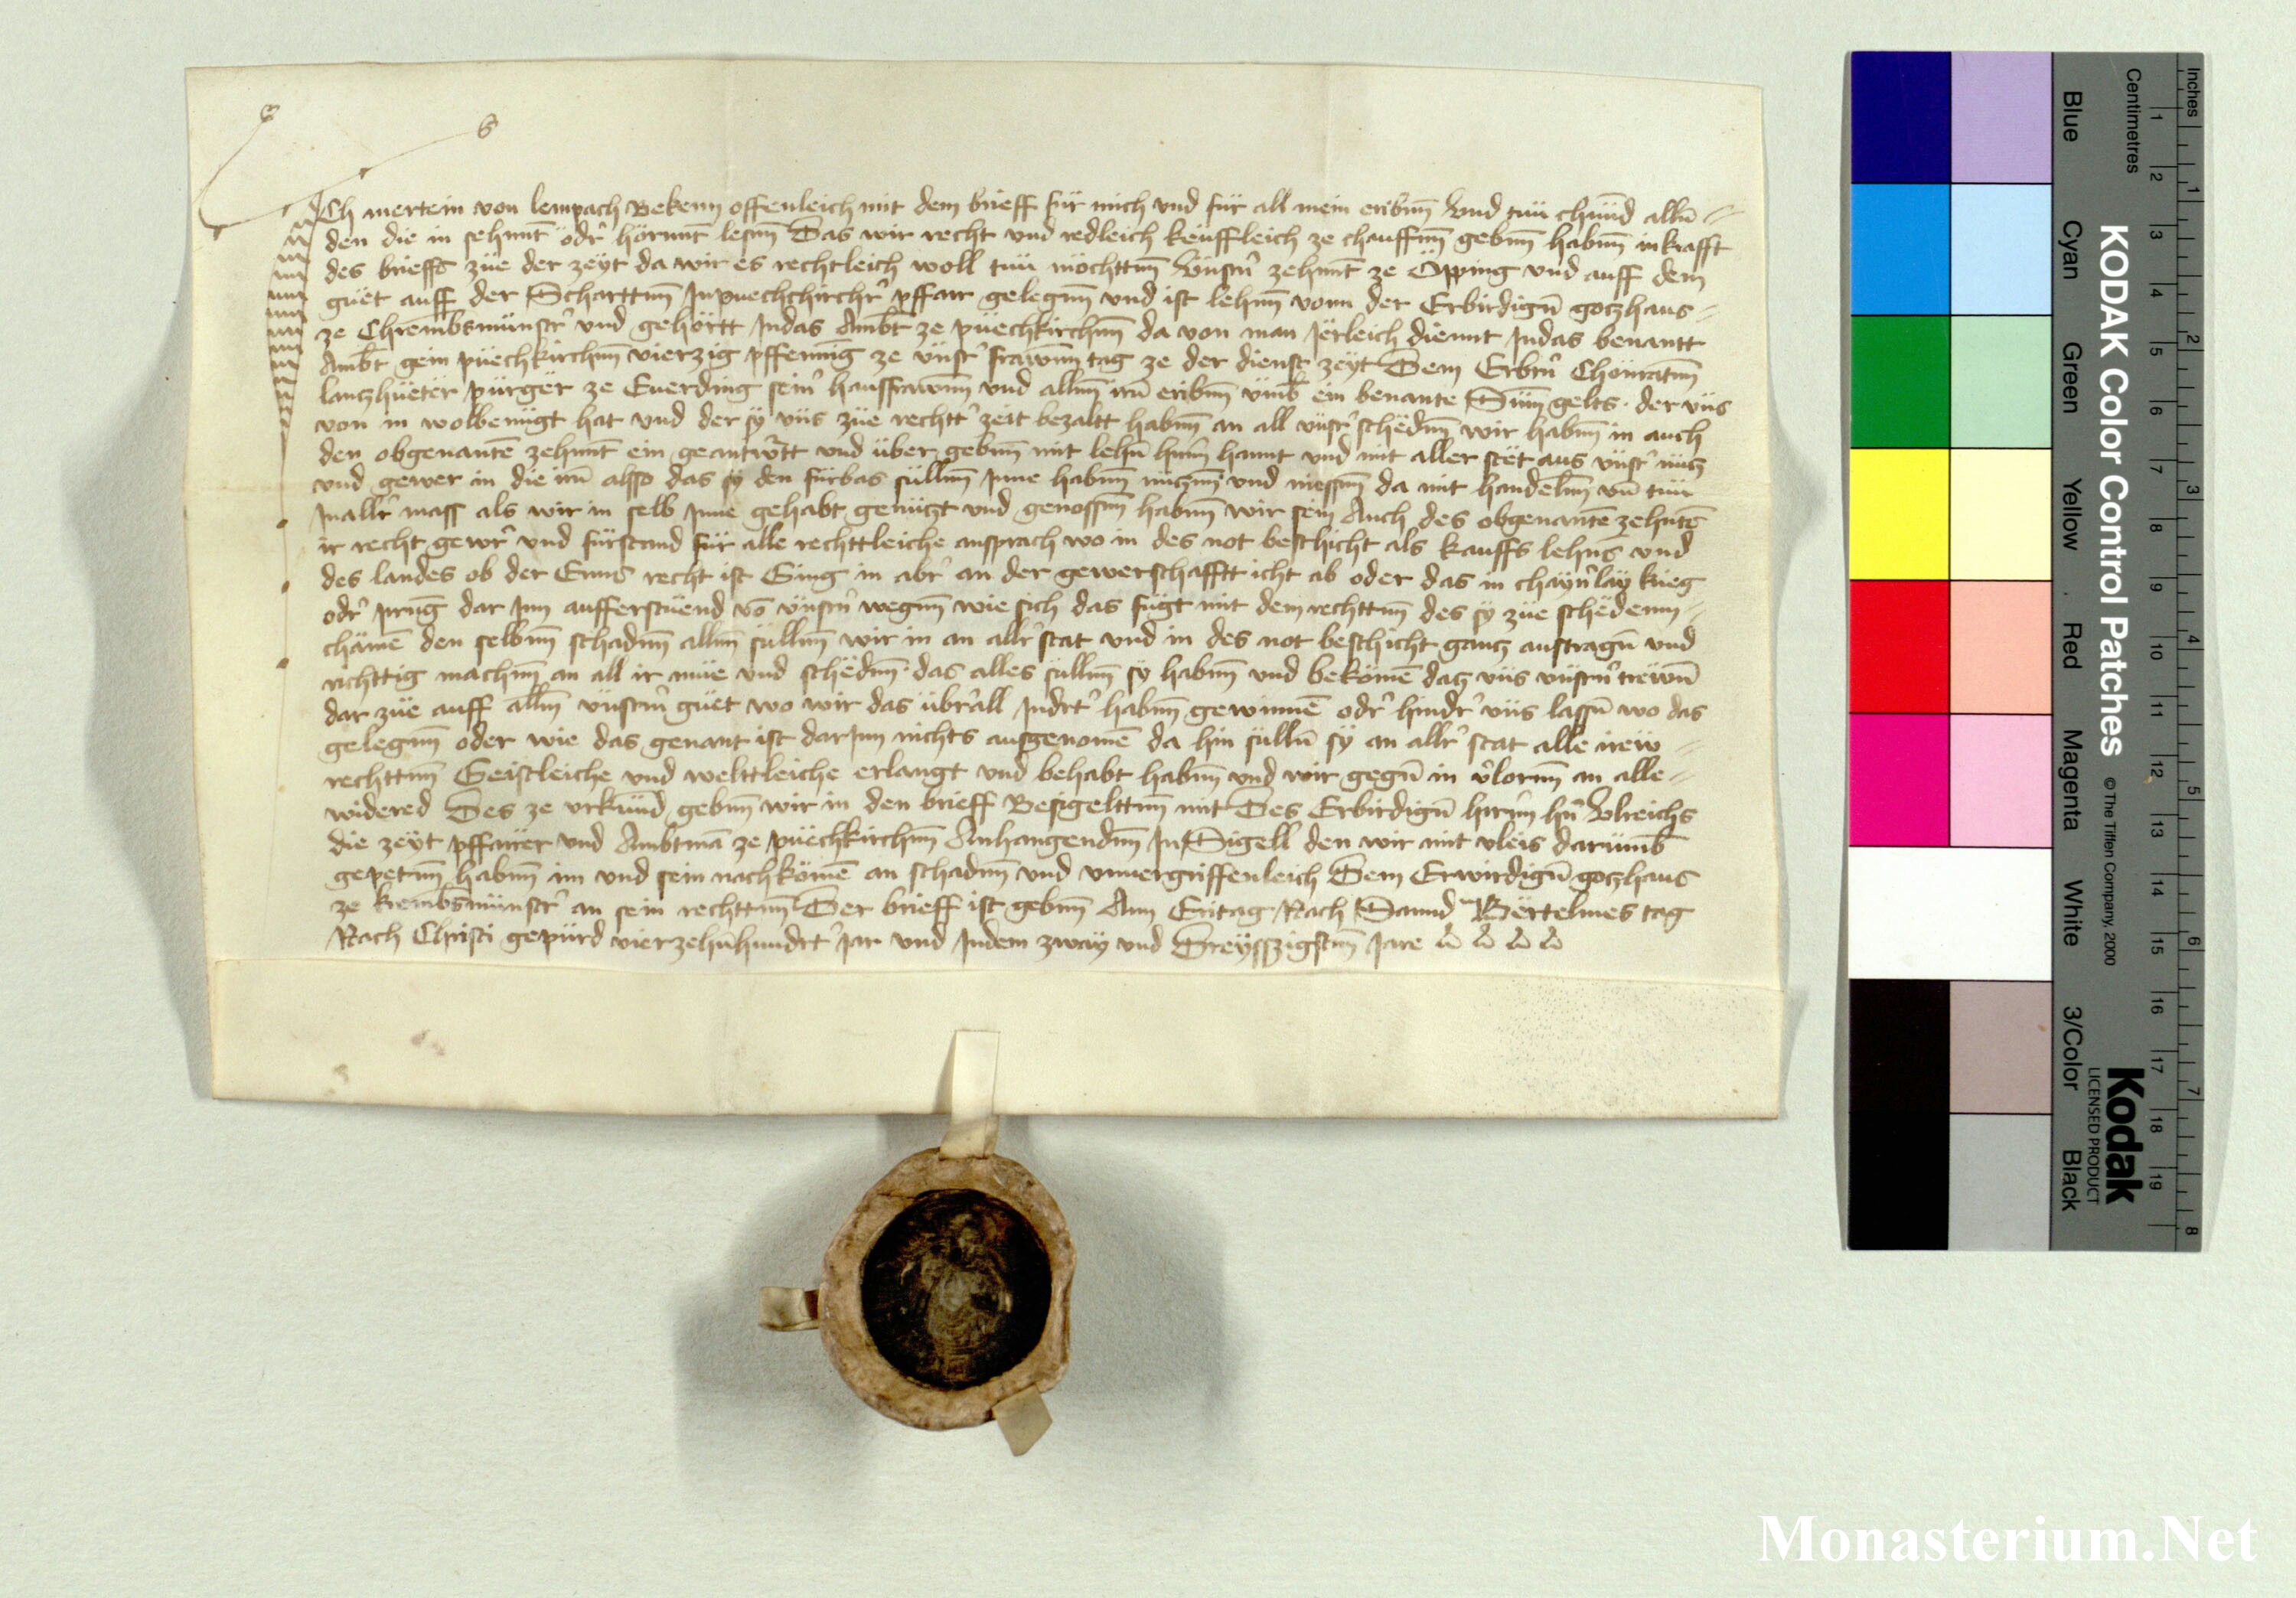 Ich mertein von lempach Bekenn offenleich mit dem brieff für mich vnd für all mein eribm̄ Vnd tuü chuͤnd alln̄
den die in sehnnt odr̛ hornnt lesnn̄ Das wir recht vnd redleich keüffleich ze chauffnn̄ gebm̄ habm̄ in krafft
des brieffs züe der zeyt da wir es rechtleich woll tuü möchttnn̄ Vnsrn̄ zehnnt ze Öpping vnd auff dem
guet auff der Scharttnn̄ In puechchirchr̛ pffarr gelegnn̄ vnd ist lehnn̄ vonn der Erbirdign̄ gotzhaus
ze Chrembsmünstr̛ vnd gehörtt In das Ambt ze püechkirchnn̄ da von man Jërleich diennt In das benantt
Ambt gein püechkirchnn̄ vierzig pffenni̅g ze vnsr̛ frawnn̄ tag ze der dienst zeyt Dem Erbrn̄ Chonratnn̄
lantzhüeter pürger ze Euerding sein̛ hausfrawnn̄ vnd allnn̄ irn̄ eribm̄ vmb ein benante Sum̄ gelts der vns
von in wolbenügt hat vnd der sy vns züe rechtt̛ zeit bezaltt habm̄ an all vnsr̛ schëdnn̄ wir habm̄ in auch
den obgenantē zehnnt ein geantw̛rtt vnd über gebm̄ mit lehn̄ hrnn̄ hannt vnd mit aller stët aus vnsr̛ nütz
vnd gewer in die irn̄ also das sy den fürbas süllnn̄ Inne habm̄ nützn̄n vnd niessnn̄ da mit handelnn̄ vn̄ tuü
In allr̛ mass als wir in selb Inne gehabt genützt vnd genossnn̄ habm̄ wir sein Auch des obgenantē zehntē
ir recht gewr̛ vnd fürstand für alle rechttleiche ansprach wo in des not beschicht als kauffs lehns vnd
des landes ob der Enns recht ist Ging in abr̛ an der gewerschafftt icht ab oder das in chayn̛lay krieg
odr̛ Irrug̅ dar Inn aufferstüend vō vnsrn̄ wegnn̄ wie sich das fügt mit dem rechttnn̄ des sy züe schëdenn
chämē den selbnn̄ schadnn̄ allnn̄ süllnn̄ wir in an allr̛ stat vnd in des not beschicht gantz austragn̄ vnd
richttig machnn̄ an all ir müe vnd schëdnn̄ das alles süllnn̄ sy habm̄ vnd bekömē datz vns vnsrn̄ trewn̄
dar züe auff alln̄ vnsrnn̄ güet wo wir das übr̛all Indrt̛ habm̄ gewinnē odr̛ hindr̛ vns lassn̄ wo das
gelegnn̄ oder wie das genant ist dar Inn nichts ausgenomē da hin sülln̄ sy an allr̛ stat alle irew
rechttnn̄ Geistleiche vnd welttleiche erlangt vnd behabt habm̄ vnd wir gegn̄ in v̛lornn̄ an alle
widered Des ze vrkünd gebm̄ wir in den brieff Besigelttnn̄ mit Des Erbirdign̄ hrrnn̄ hn̄ Vlreichs
die zeyt pffarrer vnd Ambtmā ze püechkirchnn̄ Anhangendnn̄ In Sigell den wir mit vleis darumb
gepetnn̄ habm̄ im vnd sein nachkömē an schadnn̄ vnd vnuergriffenleich Dem Erwirdign̄ gotzhaus
ze krembsmünstr̛ an sein rechttnn̄ Der brieff ist gebm̄ Ann Eritag Nach Sannd Bërtelmes tag
Nach Christi gepürd vierzehnhundrt̛ Jar vnd In dem zway vnd Dreysszigstnn̄ Jare
Inches
Centimetres
1 2 3 4 5 6 7 8 9 10 11 12 13 14 15 16 17 18 19
1 2 3 4 5 6 7 8
KODAK Color Control Patches © The Tiffen Company, 2000
Kodak
LICENSED PRODUCT
Blue Cyan Green Yellow Red Magenta White 3/Color Black
Monasterium.Net